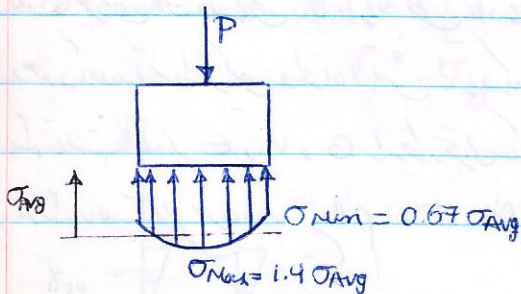 P
σAvg
σMin = 0.67 σAvg
σMax = 1.4 σAvg